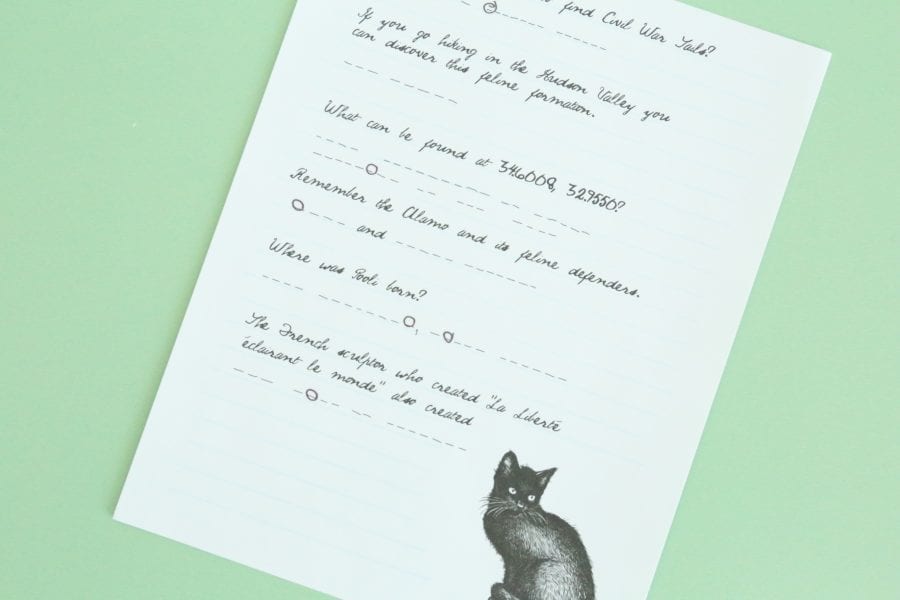 to find Civil War Tails?
If you go hiking in the Hudson Valley you
can discover this feline formation.
What can be found at 34.6008, 32.9550?
Remember the Alamo and its feline defenders.
and
Where was Pooli born?
,
The French sculptor who created "La Liberté
éclairant le monde" also created